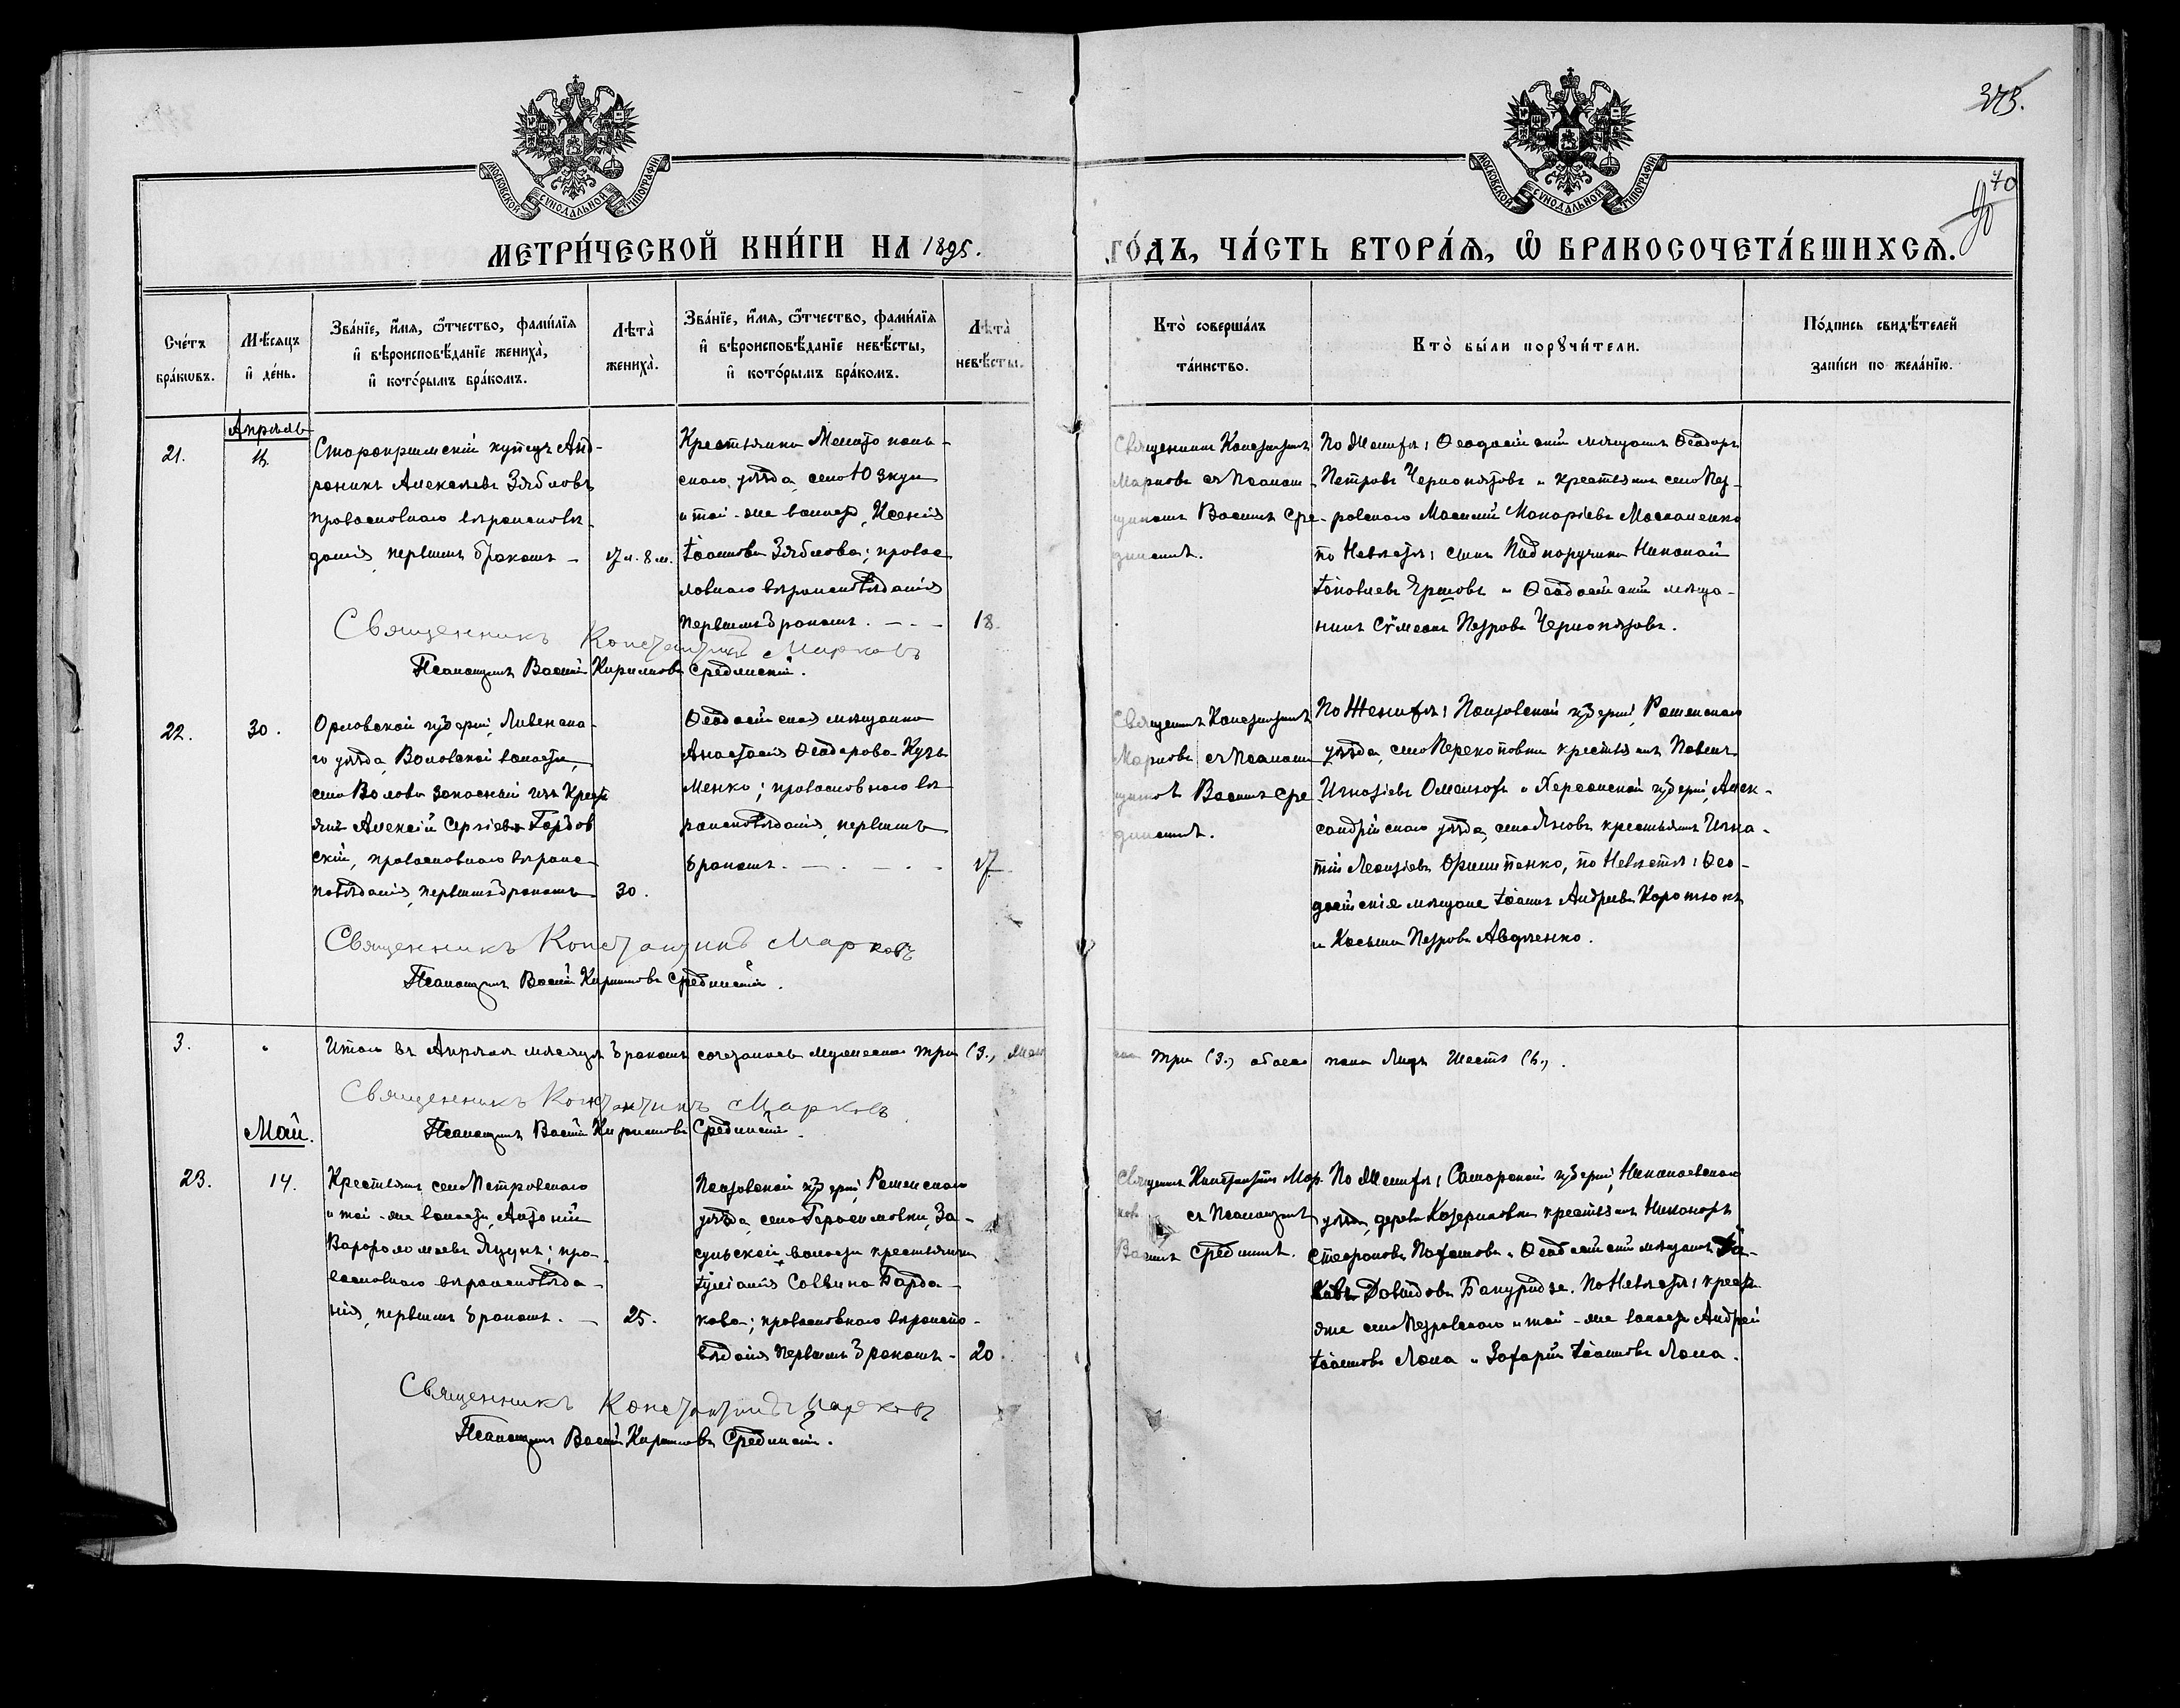 375.
70
90
МОСКОВСКОЙ СѴНОДАЛЬНОЙ ТИПОГРАФІИ
МОСКОВСКОЙ СѴНОДАЛЬНОЙ ТИПОГРАФІИ
МЕТРИ́ЧЕСКОЙ КНИ́ГИ НА 1895.
ГО́ДЪ, ЧА́СТЬ ВТОРА́Ѧ, Ѽ БРАКОСОЧЕТА́ВШИХСѦ.
Сче́тъ
бра́кѡвъ.
Мѣ́сяцъ
и҆ де́нь.
Зва́нїе, и҆́мя, ѻ҆́тчество, фами́лїя
и҆ вѣроисповѣ́данїе жениха̀,
и҆ кото́рымъ бра́комъ.
Лѣта̀
жениха̀.
Зва́нїе, и҆́мя, ѻ҆́тчество, фами́лїя
и҆ вѣроисповѣ́данїе невѣ́сты,
и҆ кото́рымъ бра́комъ.
Лѣта̀
невѣ́сты.
Кто̀ соверша́лъ
та́инство.
Кто̀ бы́ли порꙋчи́тели.
По́дпись свидѣ́телей
за́писи по жела́нїю.
Апрѣль
21.
Старокрымскій купецъ Анд-
роникъ Алексѣевъ Зябловъ
православнаго вѣроисповѣ-
данія, первымъ бракомъ –
17 л. 8 м.
Крестьянка Мелитополь-
скаго уѣзда, село Юзкуи
и той-же волости, Ксенія
Іоаннова Зяблова; правос-
лавнаго вѣроисповѣданія
первымъ бракомъ. – . –
18.
Священникъ Константинъ
Марковъ съ Псалом-
щикомъ Василіемъ Сре-
динскимъ.
По Женихѣ: Ѳеодосійскій мѣщанинъ Ѳеодоръ
Петровъ Чернопятовъ и крестьянинъ села Пет-
ровскаго Максимъ Макаріевъ Москаленко
по Невѣстѣ: сынъ Подпоручика Николай
Іаковлевъ Ершовъ и Ѳеодосійскій мѣща-
нинъ Сѵмеонъ Петровъ Чернопятовъ.
Священникъ Константинъ Марковъ
Псаломщикъ Василій Кирилловъ Срединскій.
22.
30.
Орловской губерніи, Ливенска-
го уѣзда, Воловской волости,
села Волова запасный изъ Крест
янъ Алексій Сергіевъ Гордов
скій, православнаго вѣроис-
повѣданія, первымъ бракомъ
30.
Ѳеодосійская мѣщанка
Анастасія Ѳеодорова Кузь-
менко; православнаго вѣ-
роисповѣданія, первымъ
бракомъ. – . – . –
17.
Священникъ Константинъ
Марковъ съ Псалом-
щикомъ Василіемъ Сре
динскимъ.
По Женихѣ: Полтавской губерніи, Роменскаго
уѣзда, села Перекоповки крестьянинъ Павелъ
Игнатіевъ и Херсонской губерніи, Алек-
сандрійскаго уѣзда, села крестьянинъ Игна-
тій Леонтіевъ, по Невѣстѣ: Ѳео-
досійскіе мѣщане Іоаннъ Андреевъ Коротюкъ
и Косьма Петровъ Авдченко.
Священникъ Константинъ Марковъ
Псаломщикъ Василій Кирилловъ Срединскій.
3. Итого въ Апрѣлѣ мѣсяцѣ бракомъ сочеталось мужеска три (3.), жен
ска три (3.) обоего пола лицъ шесть (6.).
Священникъ Константинъ Марковъ
Псаломщикъ Василій Кирилловъ Срединскій.
Май.
23.
14.
Крестьянинъ села Петровскаго
и той-же волости, Антоній
Варѳоломеевъ Яцунъ; пра-
вославнаго вѣроисповѣда-
нія, первымъ бракомъ. –
25.
Полтавской губерніи, Роменскаго
уѣзда, села Герасимовки, За-
сульской волости крестьянка
Іуліанія Саввина Барда-
кова; православнаго вѣроиспо-
вѣданія первымъ бракомъ –
20.
Священникъ Константинъ Мар-
ковъ съ Псаломщикомъ
Василіемъ Срединскимъ.
По Женихѣ: Самарской губерніи, Николаевскаго
уѣзда, деревни Катериновки крестьянинъ Никаноръ
Стефановъ и Ѳеодосійскій мѣщанинъ Іа-
ковъ Давидовъ Бакуридзе. По Невѣстѣ: крестья
яне села Петровскаго и той-же волости Андрей
Іоанновъ Лола и Захарій Іоанновъ Лола.
Священникъ Константинъ Марковъ
Псаломщикъ Василій Кирилловъ Срединскій.